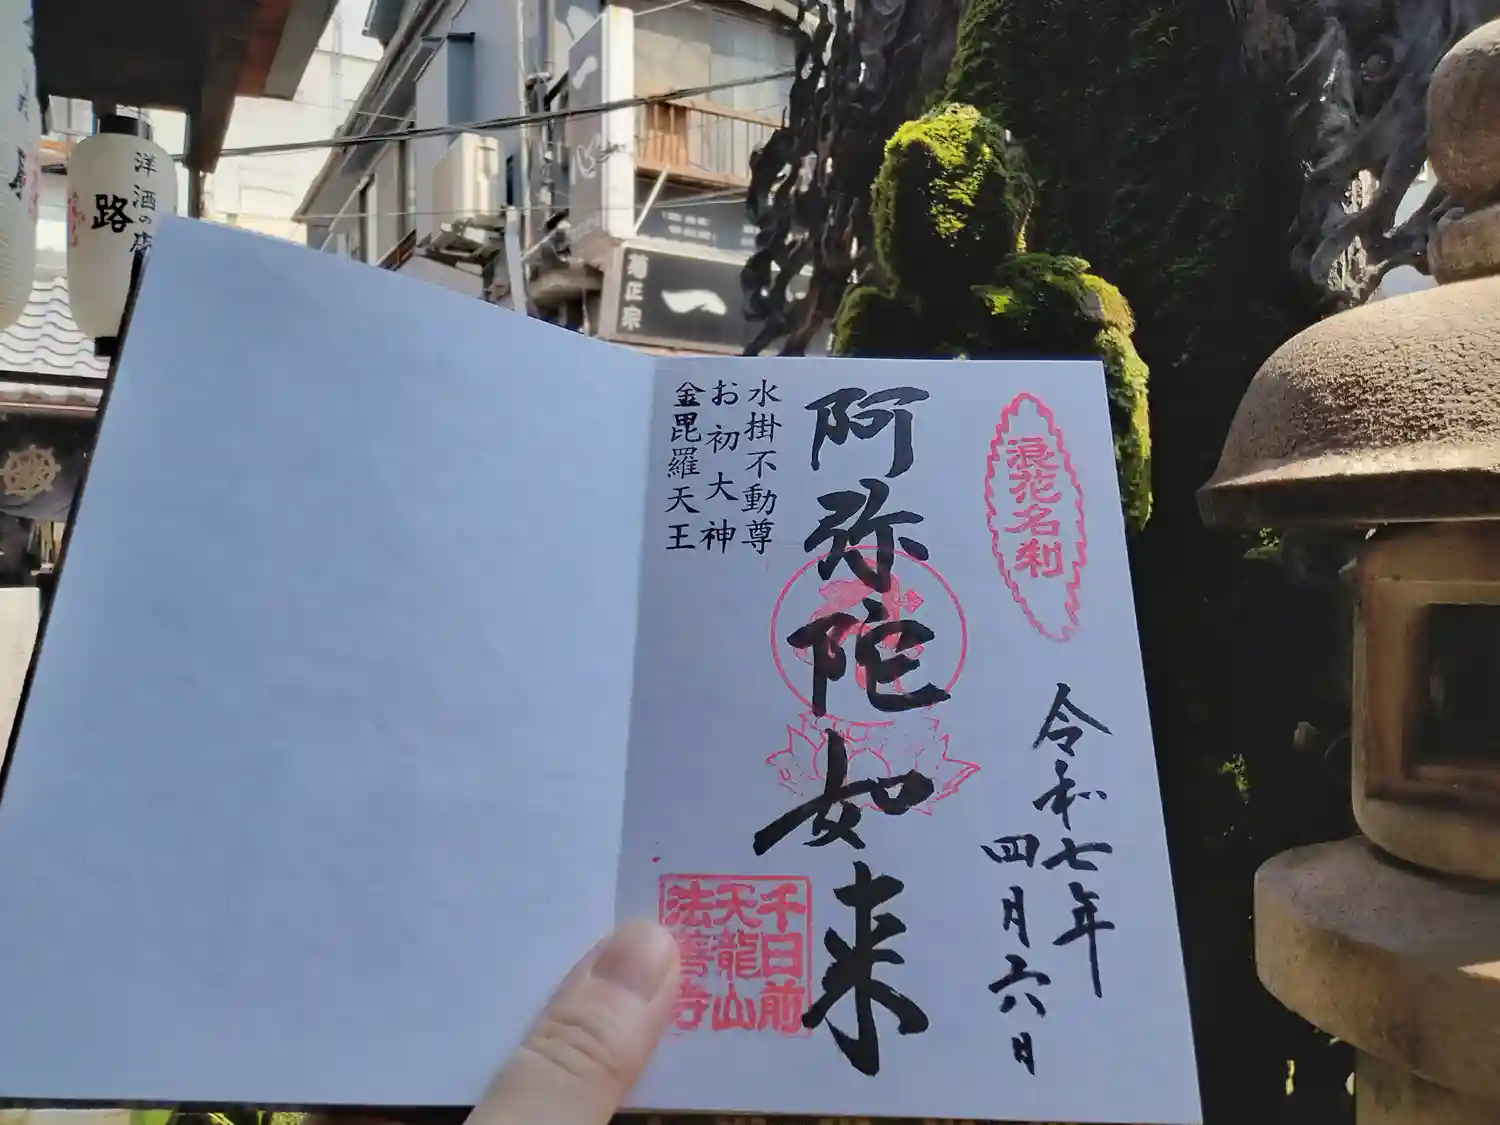 洋酒の店
路
菊正宗
一
浪花名刹
令和七年
四月六日
阿弥陀如来
水掛不動尊
お初大神
金毘羅天王
千日前
天龍山
法善寺